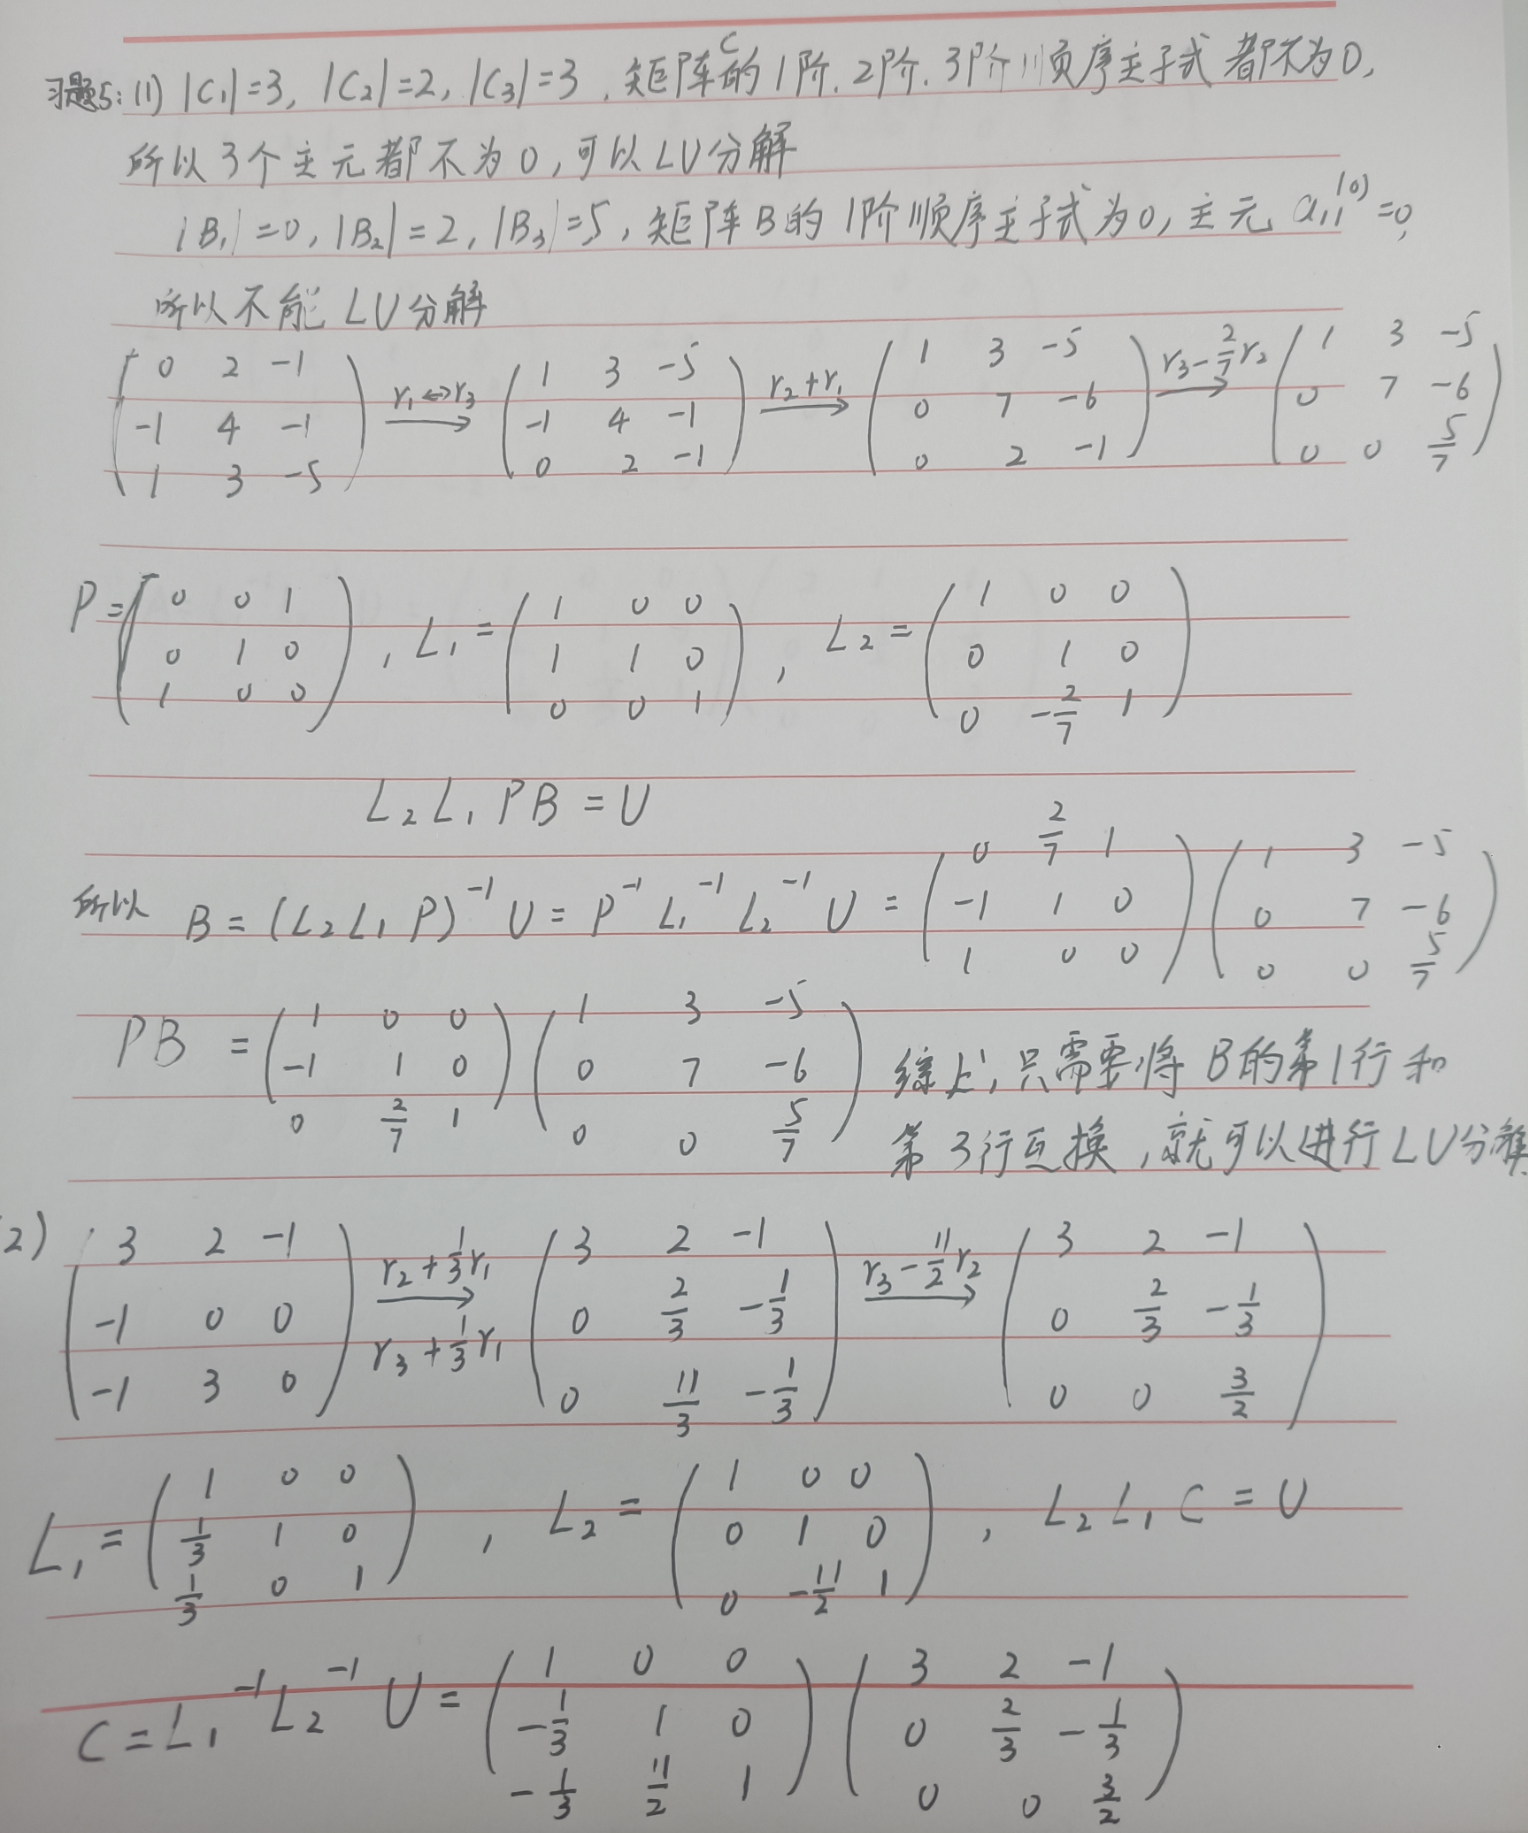 习题5: (1) |C₁|=3, |C₂|=2, |C₃|=3, 矩阵C的1阶.2阶.3阶顺序主子式都不为0,
所以3个主元都不为0,可以LU分解
|B₁|=0, |B₂|=2, |B₃|=5, 矩阵B的1阶顺序主子式为0,主元 a₁₁⁽⁰⁾=0,
所以不能LU分解
(0 2 -1; -1 4 -1; 1 3 -5) r₁↔r₃→ (1 3 -5; -1 4 -1; 0 2 -1) r₂+r₁→ (1 3 -5; 0 7 -6; 0 2 -1) r₃-2/7r₂→ (1 3 -5; 0 7 -6; 0 0 5/7)
P=(0 0 1; 0 1 0; 1 0 0), L₁=(1 0 0; 1 1 0; 0 0 1), L₂=(1 0 0; 0 1 0; 0 -2/7 1)
L₂L₁PB=U
所以 B=(L₂L₁P)⁻¹U=P⁻¹L₁⁻¹L₂⁻¹U=(0 2/7 1; -1 1 0; 1 0 0)(1 3 -5; 0 7 -6; 0 0 5/7)
PB=(1 0 0; -1 1 0; 0 2/7 1)(1 3 -5; 0 7 -6; 0 0 5/7) 综上,只需要将B的第1行和
第3行互换,就可以进行LU分解
2) (3 2 -1; -1 0 0; -1 3 0) r₂+1/3r₁→ r₃+1/3r₁ (3 2 -1; 0 2/3 -1/3; 0 11/3 -1/3) r₃-11/2r₂→ (3 2 -1; 0 2/3 -1/3; 0 0 3/2)
L₁=(1 0 0; 1/3 1 0; 1/3 0 1), L₂=(1 0 0; 0 1 0; 0 -11/2 1), L₂L₁C=U
C=L₁⁻¹L₂⁻¹U=(1 0 0; -1/3 1 0; -1/3 11/2 1)(3 2 -1; 0 2/3 -1/3; 0 0 3/2)